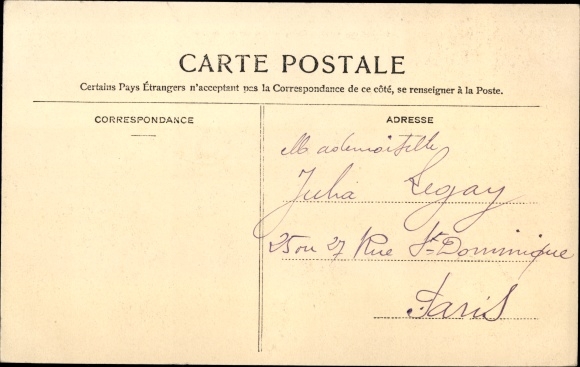 CARTE POSTALE
Certains Pays Étrangers n'acceptant pas la Correspondance de ce côté, se renseigner à la Poste.
CORRESPONDANCE
ADRESSE
Mademoiselle
Julia Legay
25 ou 27 Rue St-Dominique
Paris